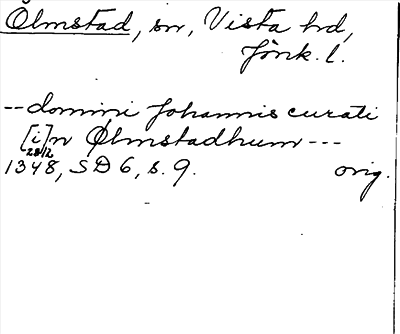 Ölmstad, sn, Vista hd,
Jönk. l.
-- domini Johannis curati
[i]n Ølmstadhum ---
28/2
1348, SD 6, s. 9. orig.